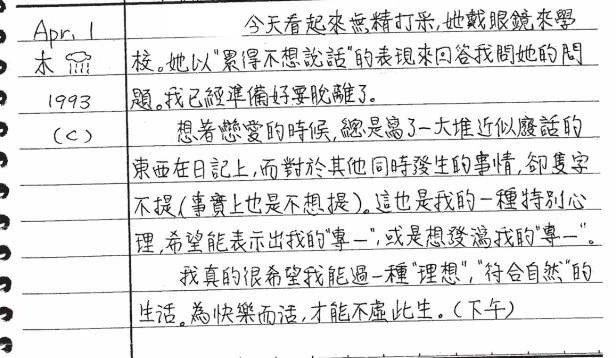 Apr. 1
木
1993
(C)
今天看起來無精打采,她戴眼鏡來學
校。她以"累得不想說話"的表現來回答我問她的問
題。我已經準備好要脫離了。
想著戀愛的時候,總是寫了一大堆近似廢話的
東西在日記上,而對於其他同時發生的事情,卻隻字
不提(事實上也是不想提)。這也是我的一種特別心
理,希望能表示出我的"專一",或是想發瀉我的"專一"。
我真的很希望我能過一種"理想","符合自然"的
生活。為快樂而活,才能不虛此生。(下午)